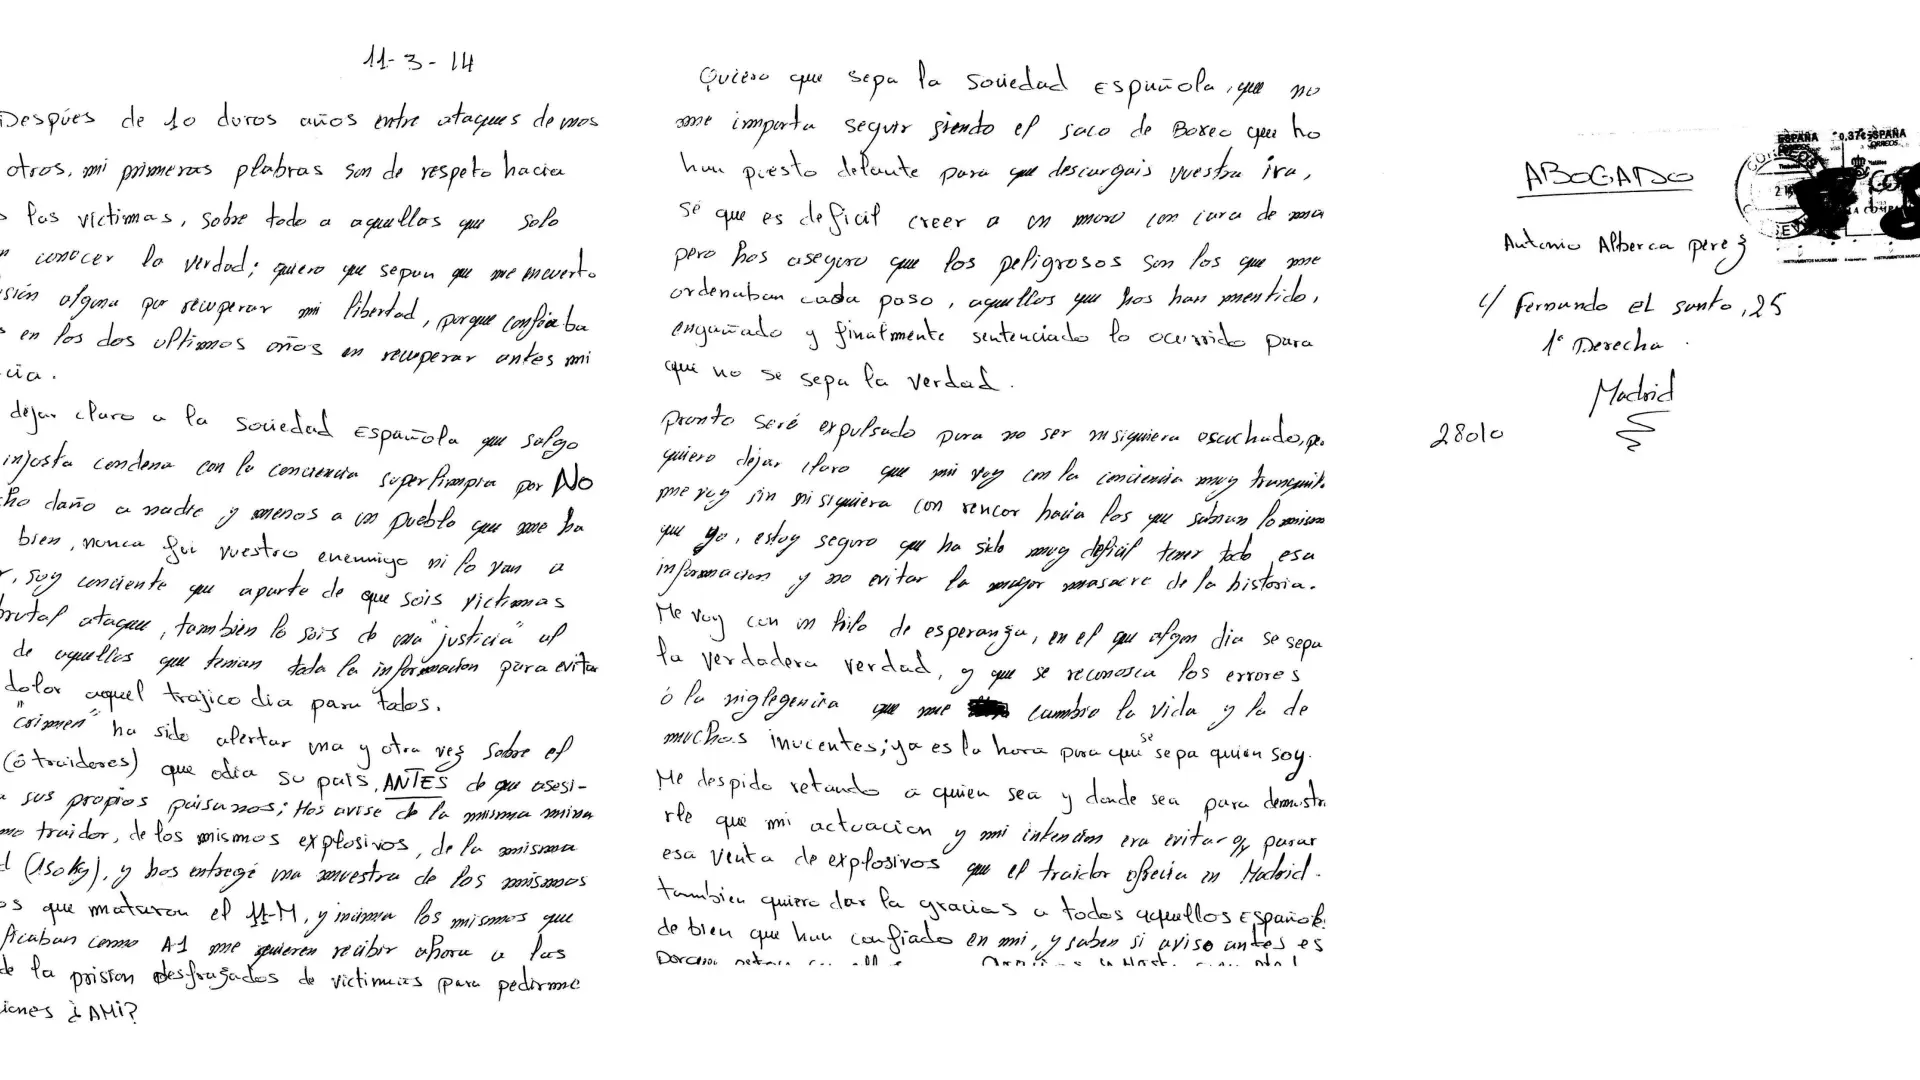 11-3-14
Después de 10 duros años entre ataques de unos
otros, mi primeras plabras son de respeto hacia
las víctimas, sobre todo a aquellas que solo
conocer la verdad; quiero que sepan que me encuentro
sión alguna por recuperar mi libertad, porque confiaba
en los dos ultimos años en recuperar antes mi
cia.
dejar claro a la sociedad Española que salgo
injosta condena con la conciencia superlimpia por NO
cho daño a nadie y menos a un pueblo que me ha
bien, nunca fui vuestro enemmigo ni lo van a
r, soy conciente que aparte de que sois victimas
brutal ataque, tambien lo sois de una "justicia" al
de aquellos que tenian toda la información para evitar
dolor aquel trajico dia para todos.
"crimen" ha sido alertar una y otra vez sobre el
(ó traidores) que odia su país, ANTES de que asesi-
a sus propios paisanos; Hos avise de la misma mina
mo traidor, de los mismos explosivos, de la misma
d (150kg), y hos entregé una muestra de los mismos
os que mataron el 11-M, y mismo los mismos que
ficaban como A1 me quieren recibir ahora a las
de la prision desfrazados de victimas para pedirme
iones ¿AMi?
Quiero que sepa la sociedad Española, que no
me importa seguir siendo el saco de Boxeo que ho
han puesto delante para que descargais vuestra ira,
sé que es deficil creer a un moro con cara de ma
pero hos aseguro que los peligrosos son los que me
ordenaban cada paso, aquellos que hos han mentido,
engañado y finalmente sentenciado lo ocurrido para
que no se sepa la verdad.
pronto seré expulsado para no ser nisiquiera escuchado, pe
quiero dejar claro que mi voy con la conciencia muy tranquil
me voy sin nisiquiera con rencor hacia los que sabian lo mismo
que yo, estoy seguro que ha sido muy deficil tener todo esa
informacion y no evitar la mayor masacre de la historia.
Me voy con un hilo de esperanza, en el que algun dia se sepa
la verdadera verdad, y que se reconosca los errores
ó la niglegencia que me cambio la vida y la de
muchos inucentes; ya es la hora para que se sepa quien soy.
Me despido retando a quien sea y donde sea para demostra
rle que mi actuacion y mi intención era evitar y parar
esa venta de explosivos que el traidor ofrecia en Madrid.
tambien quiero dar la gracias a todos aquellos Español
de bien que han confiado en mi, y saben si aviso antes es
ABOGADO
Antonio Alberca perez
c/ Fernando el santo, 25
1º Derecha.
Madrid
28010
ESPAÑA 0,37€ ESPAÑA
CORREOS